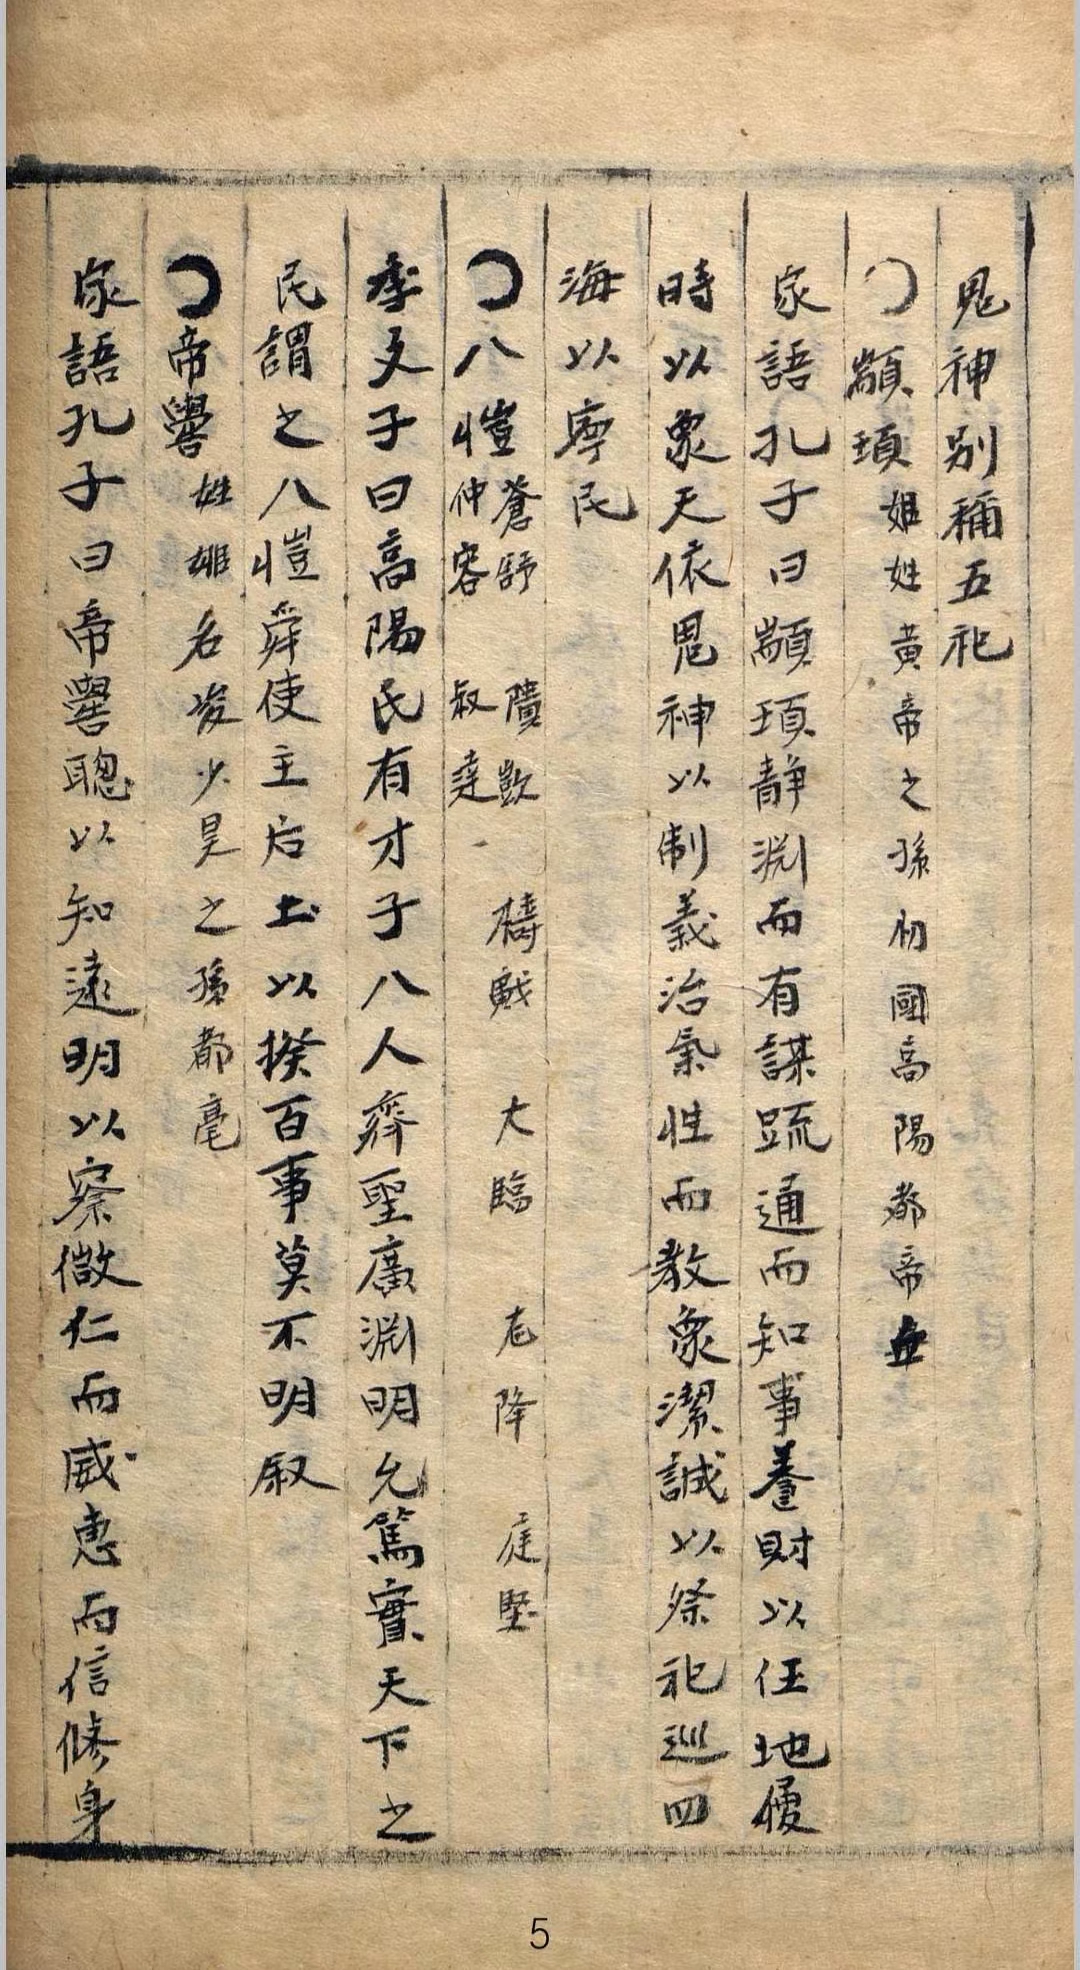 鬼神別稱五祀
顓頊姬姓黃帝之孫初國高陽都帝丘
家語孔子曰顓頊静渊而有謀䟽通而知事養財以任地優
時以象天依鬼神以制義治氣性而教衆潔誠以祭祀巡四
海以寧民
八愷蒼舒 隤敳 檮戭 大臨 尨降 庭堅
仲容 叔達
季文子曰高陽氏有才子八人齊聖廣渊明允篤實天下之
民謂之八愷舜使主后土以揆百事莫不明叙
帝嚳姓姬名夋少昊之孫都亳
家語孔子曰帝嚳聰以知遠明以察微仁而威惠而信修身
5